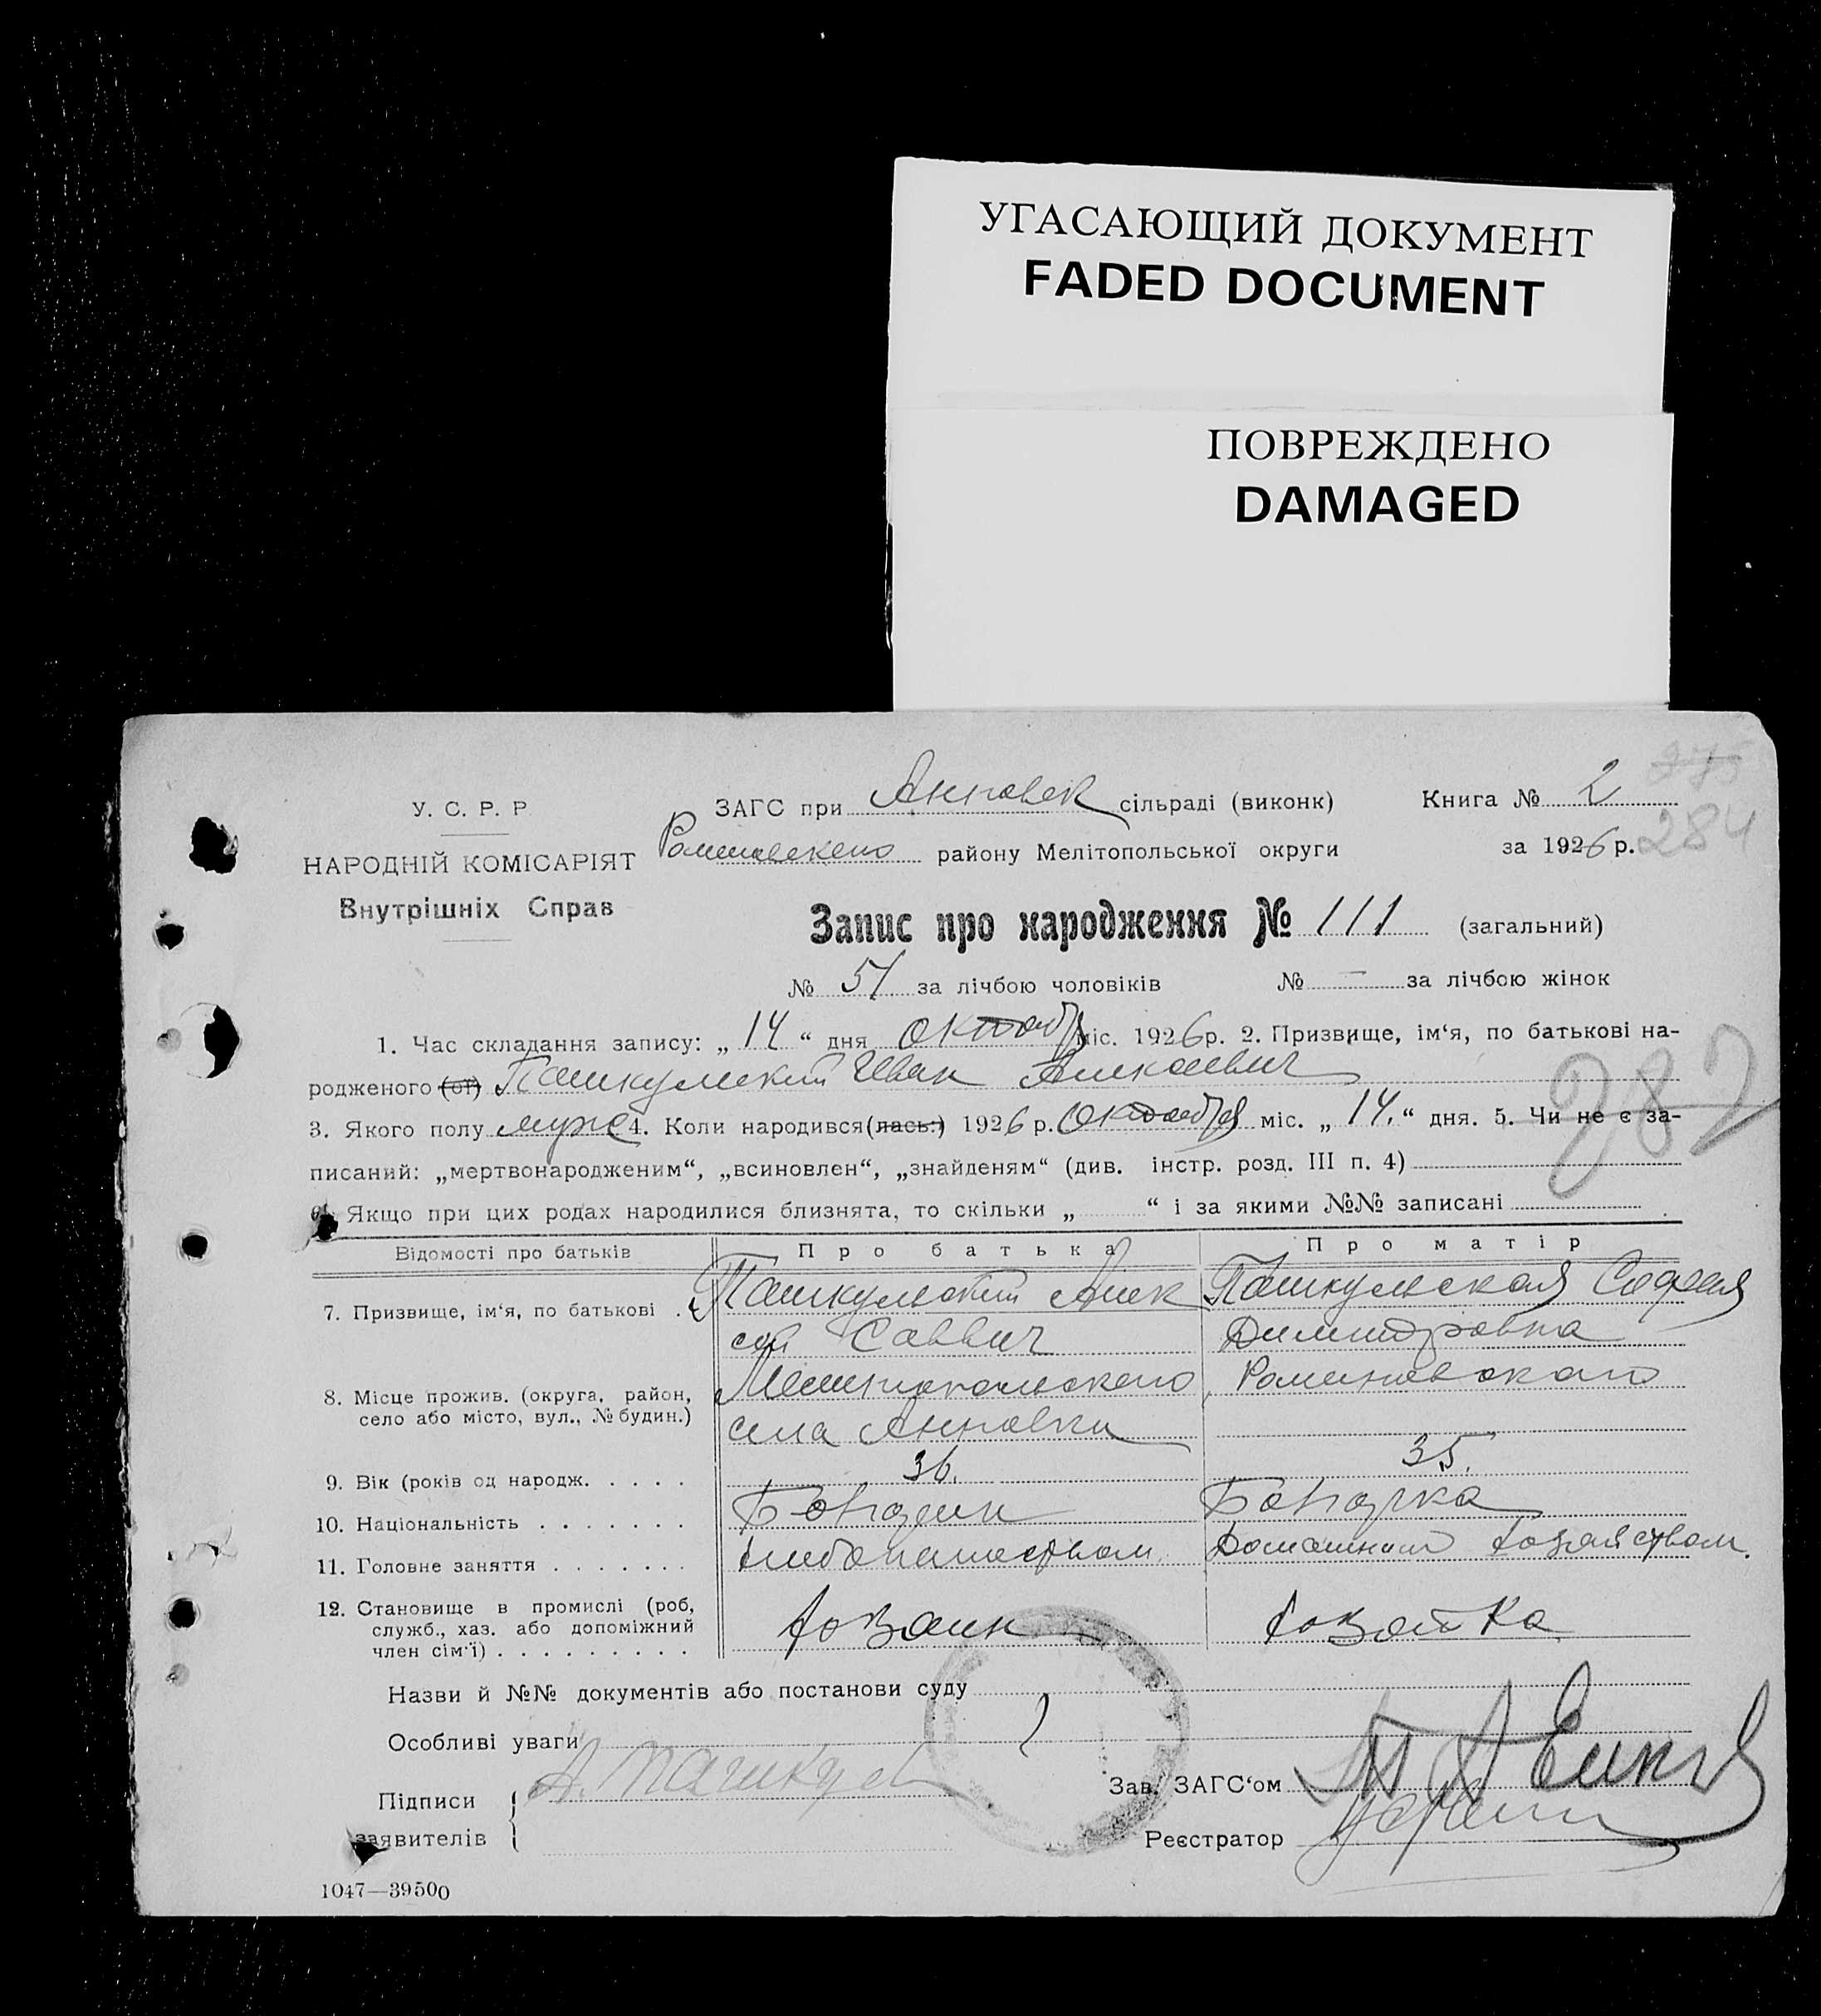 УГАСАЮЩИЙ ДОКУМЕНТ
FADED DOCUMENT
ПОВРЕЖДЕНО
DAMAGED
275
У. С. Р. Р
ЗАГС при Анновск сільраді (виконк)
Книга № 2
НАРОДНІЙ КОМІСАРІЯТ
району Мелітопольської округи
за 1926 р. 284
Внутрішніх Справ
Запис про народження № 111 (загальний)
№ 51 за лічбою чоловіків № — за лічбою жінок
1. Час складання запису: „ 14 “ дня октяб міс. 1926 р. 2. Призвище, ім‘я, по батькові на-
родженого (ої) Пашкульский Иван
287
3. Якого полу муж 4. Коли народився (лась:) 1926 р. октября міс. „ 14. “ дня. 5. Чи не є за-
писаний: „мертвонародженим“, „всиновлен“, „знайденям“ (див. інстр. розд. III п. 4)
6. Якщо при цих родах народилися близнята, то скільки „ “ і за якими №№ записані
Відомості про батьків Про батька Про матір
7. Призвище, ім‘я, по батькові . Пашкульский Алек Пашкульская София
сей Саввич Димитровна
8. Місце прожив. (округа, район, Мелитопольского
село або місто, вул., № будин.) села Анновки
9. Вік (років од народж. . . . . 36. 35.
10. Національність . . . . . . . Болгарка
11. Головне заняття . . . . . . . хлебопашеством Домашним хозяйством.
12. Становище в промислі (роб, хозаин хозайка
служб., хаз. або допоміжний
член сім‘ї) . . . . . . . . .
Назви й №№ документів або постанови суду
Особливі уваги
Підписи А. Пашкул
Зав. ЗАГС‘ом
заявителів
Реєстратор
1047—39500